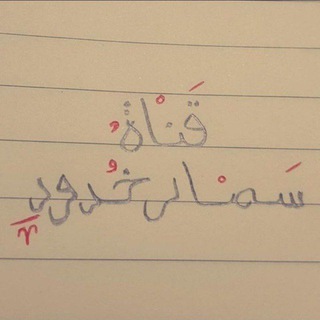 قَناةُ
سَمنار خُدود